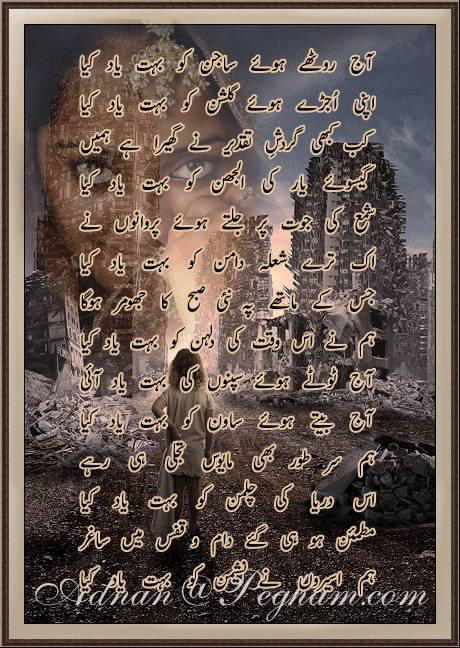 آج روٹھے ہوئے ساجن کو بہت یاد کیا
اپنی اُجڑے ہوئے گلشن کو بہت یاد کیا
کب کبھی گردشِ تقدیر نے گھیرا ہے ہمیں
گیسوئے یار کی الجھن کو بہت یاد کیا
شمع کی جوت پر جلتے ہوئے پردانوں نے
اک ترے شعلہ دامن کو بہت یاد کیا
جس کے ماتھے پہ نئی صبح کا جھومر ہوگا
ہم نے اس وقت کی دلہن کو بہت یاد کیا
آج ٹوٹے ہوئے سپنوں کی بہت یاد آئی
آج بیتے ہوئے ساون کو بہت یاد کیا
ہم سر طور بھی مایوس تجلی ہی رہے
اس دریا کی چلمن کو بہت یاد کیا
مطمئن ہو ہی گئے دام و قفس میں ساغر
ہم اسیروں نے نشیمن کو بہت یاد کیا
Adnan@Pegham.com